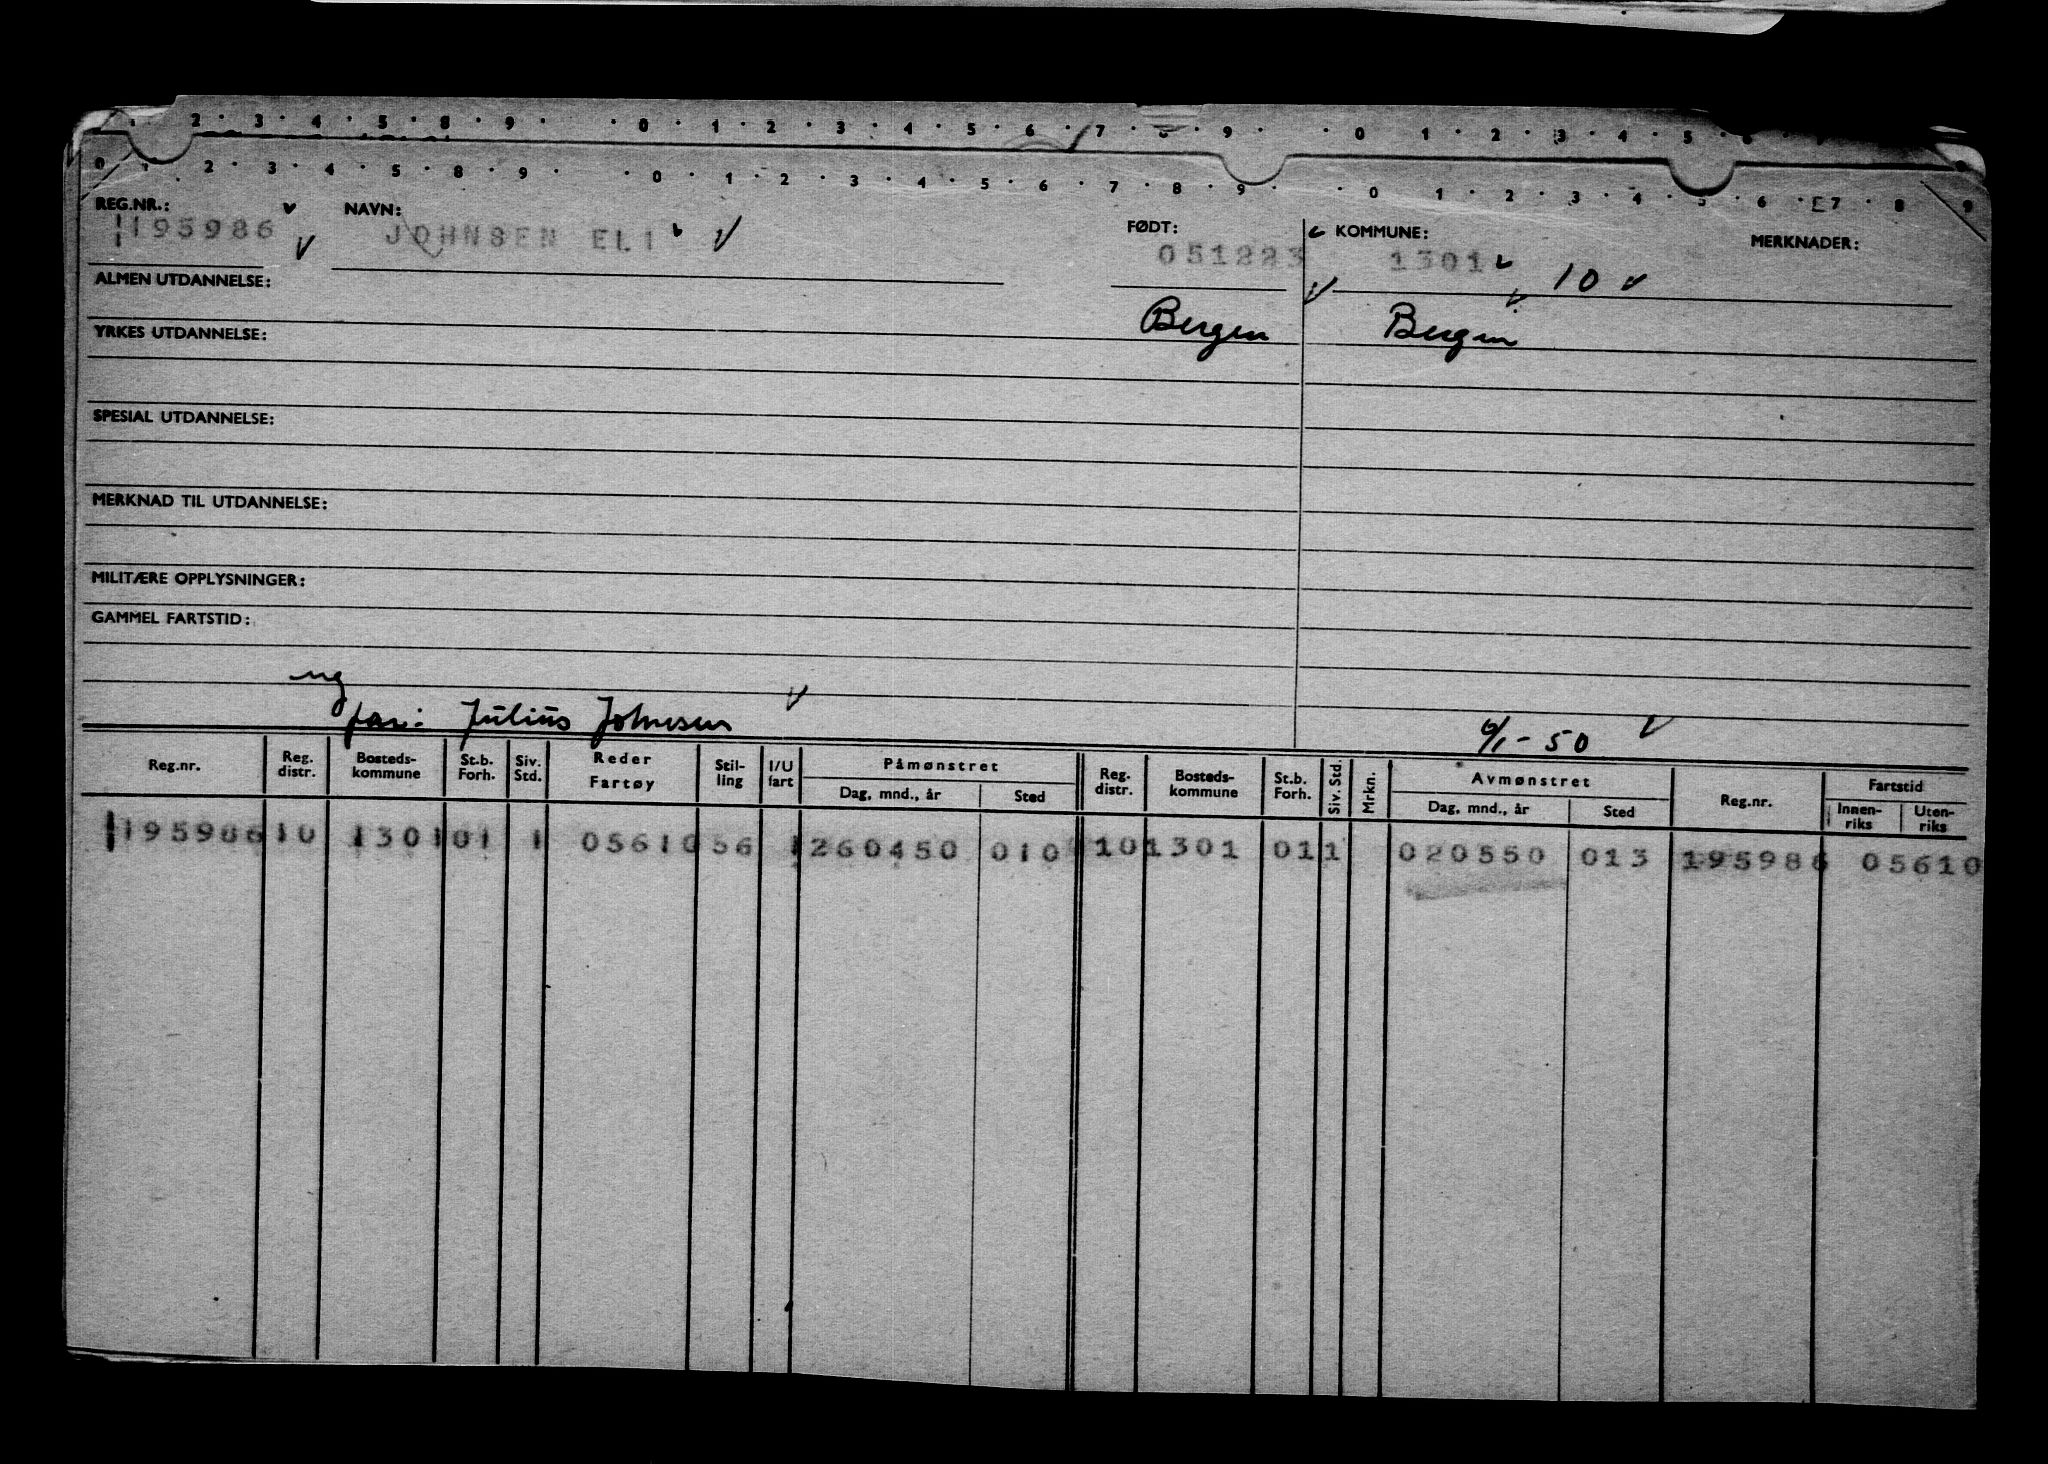 2 · 3 · 4 · 5 · 8 · 9 · · 0 · 1 · 2 · 3 · 4 · 5 · 6 · 7 · 8 · 9 · · 0 · 1 · 2 · 3 · 4 · 5 · 6 · 7
0 1 · 2 · 3 · 4 · 5 · 8 · 9 · · 0 · 1 · 2 · 3 · 4 · 5 · 6 · 7 · 8 · 9 · · 0 · 1 · 2 · 3 · 4 · 5 · 6 · E7 · 8 · 9
REG.NR.: NAVN: FØDT: KOMMUNE: MERKNADER:
195986 JOHNSEN ELI 051223 1301 10
ALMEN UTDANNELSE:
Bergen Bergen
YRKES UTDANNELSE:
SPESIAL UTDANNELSE:
MERKNAD TIL UTDANNELSE:
MILITÆRE OPPLYSNINGER:
GAMMEL FARTSTID:
ug
far: Julius Johnsen 6/1-50
Reg.nr. Reg. distr. Bosteds-kommune St.b. Forh. Siv. Std. Reder Fartøy Stil-ling I/U fart Påmønstret Dag, mnd., år Sted Reg. distr. Bosteds-kommune St.b. Forh. Siv. Std. Mrkn. Avmønstret Dag, mnd., år Sted Reg.nr. Fartstid Innen-riks Uten-riks
195986 10 1301 01 1 05610 56 1 260450 010 10 1301 01 1 020550 013 195986 05610